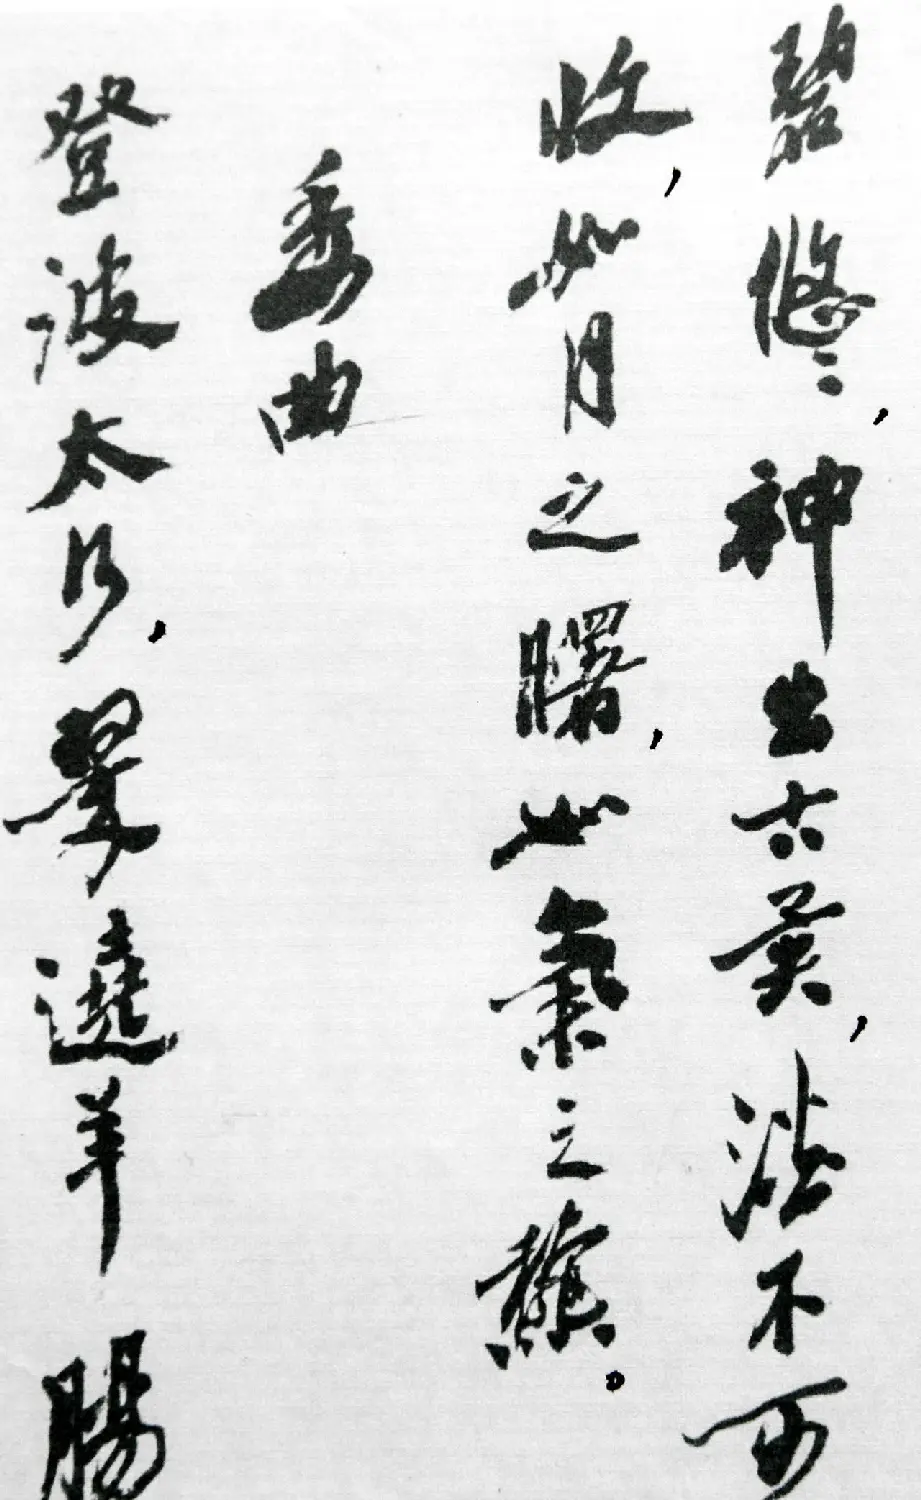 碧悠悠,神出古異,澹不可
收,如月之曙,如氣之龝。
委曲
登彼太行,翠遶羊腸